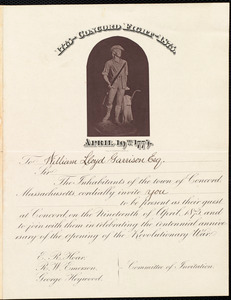 1775-CONCORD FIGHT-1875.
APRIL 19TH 1775.
To William Lloyd Garrison Esq.
Sir
The Inhabitants of the town of Concord
Massachusetts cordially invite you
to be present as their guest
at Concord on the Nineteenth of April 1875 and
to join with them in celebrating the centennial anniver-
sary of the opening of the Revolutionary War.
E. R. Hoar
R. W. Emerson
George Heywood
Committee of Invitation